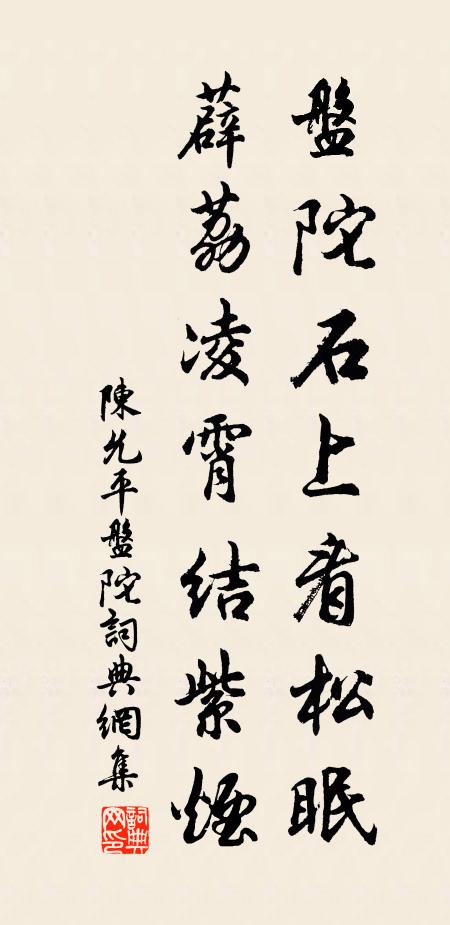 盤陀石上看松眠
薜荔凌霄結紫煙
陳允平盤陀詞典網集
詞典網印